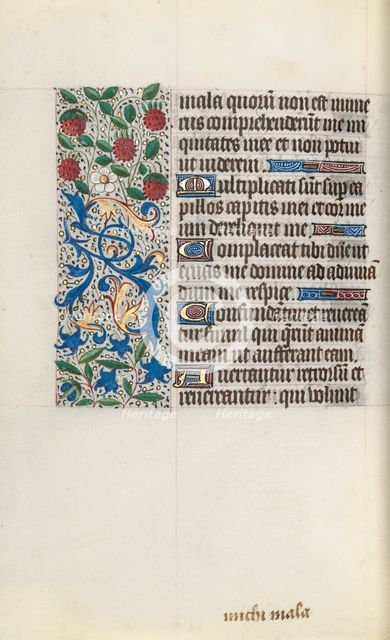 mala quorū non est nume
rus comprehenderūt me mi
quitates mee et non potui
ut viderem
Multiplicati sūt sup ca
pillos capitis mei et cor me
um dereliquit me
Complaceat tibi dñe ut
eruas me domine ad adiuvā
dum me respice
Confundātur et reverea
tur simul qui querūt animā
meam ut aufferant eam
Avertantur retrorsū et
revereantur : qui volunt
michi mala
Heritage
Heritage